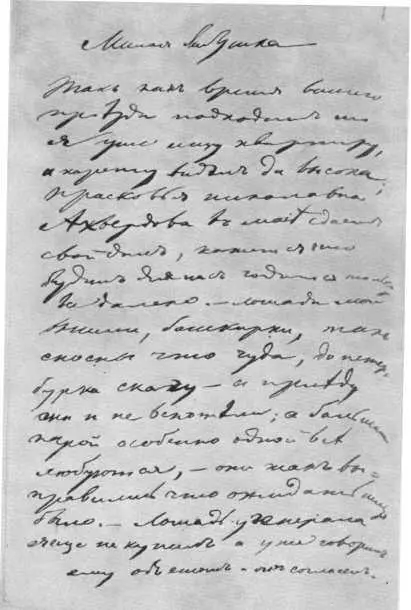 Милая бабушка
Такъ какъ время вашего
приѣзда подходитъ то
я уже ищу квартиру,
и карету видѣлъ да высока;
Прасковья Николавна
Ахвердова въ маѣ сдаетъ
свой домъ, кажется что
будетъ для насъ годится только
далеко. — Лошади мои
вышли, башкирки, такъ
сносны что чудо, до петер-
бурка скачу — а приѣду
они и не вспотѣли; а большими
парой особенно одной всѣ
любуются, — они такъ вы-
правились что ожидать нельзя
было. — Лошадь у генерала
еще не купилъ а уже говорилъ
ему объ этомъ — онъ согласенъ.